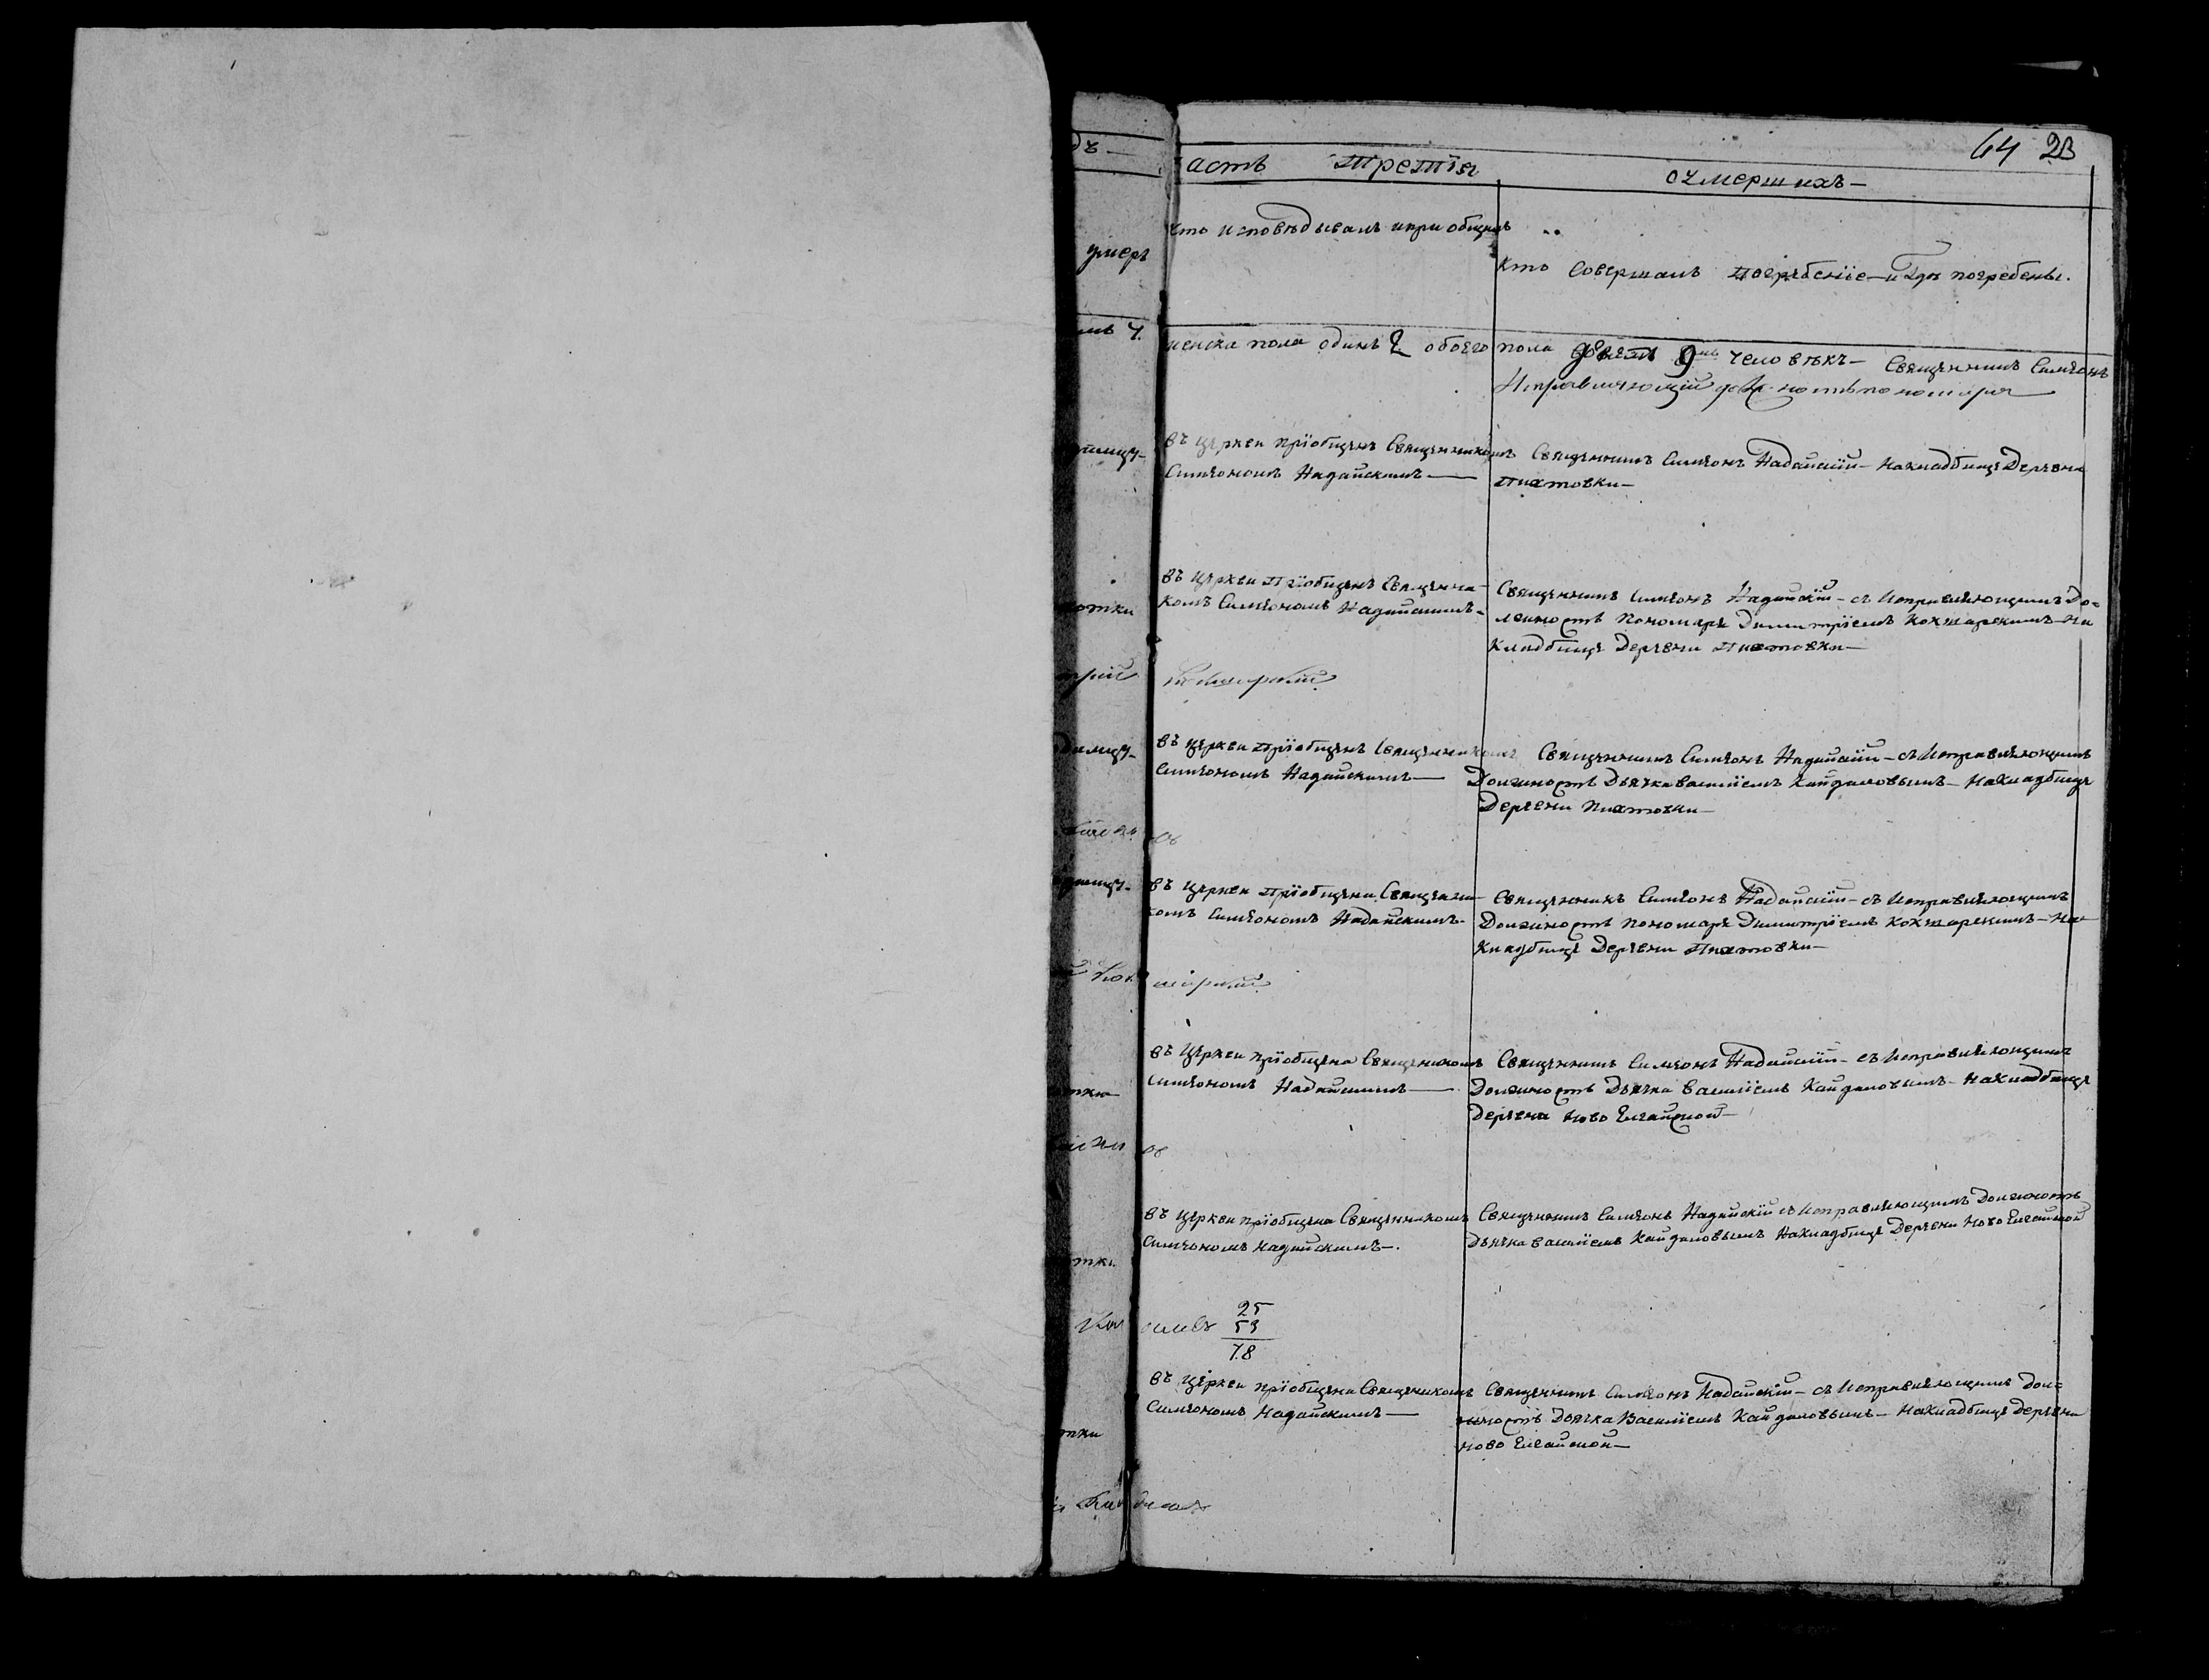 64 23
асть третія
о умершихъ—
Кто исповѣдывалъ и приобщалъ
умеръ
Кто совершалъ погребеніе—и Гдѣ погребены.
женска пола одинъ 1 обоего пола девять 9ть человѣкъ— Священникъ Симеонъ
Исправляющій должность пономаря
въ церкви пріобщенъ Священникомъ
Симеономъ Надайскимъ—
Священникъ Симеонъ Надайскій— на кладбище Деревни
Пихтовки—
въ церкви пріобщенъ Священни-
комъ Симеономъ Надайскимъ-
Священникъ Симеонъ Надайскій— съ Исправляющимъ До=
лжность Пономаря Димитріемъ Кокшарскимъ—На
Кладбище Деревни Пихтовки—
Кокшарскій
въ церкви пріобщенъ Священникомъ
Симеономъ Надайскимъ—
Священникъ Симеонъ Надайскій— съ Исправляющимъ
Должность Дьячка Василіемъ Кайдаловымъ— На кладбище
Деревни Пихтовки—
въ церкви пріобщена Священни-
комъ Симеономъ Надайскимъ-
Священникъ Симеонъ Надайскій— съ Исправляющимъ
Должность Пономаря Димитріемъ Кокшарскимъ— На
Кладбище Деревни Пихтовки—
въ Церкви пріобщена Священикомъ
Симеономъ Надайскимъ—
Священникъ Симеонъ Надайскій— съ Исправляющимъ
Должность Дьячка Василіемъ Кайдаловымъ— На кладбище
Деревни Ново
въ церкви пріобщена Священникомъ
Симеономъ Надайскимъ—.
Священникъ Симеонъ Надайскій съ Исправляющимъ Должность
Дьячка Василіемъ Кайдаловымъ На кладбище Деревни Ново
25
53
78
въ церкви пріобщена Священикомъ
Симеономъ Надайскимъ—
Священникъ Симеонъ Надайскій— съ Исправляющимъ Дол=
жность Дьячка Василіемъ Кайдаловымъ— На кладбище Деревни
Ново